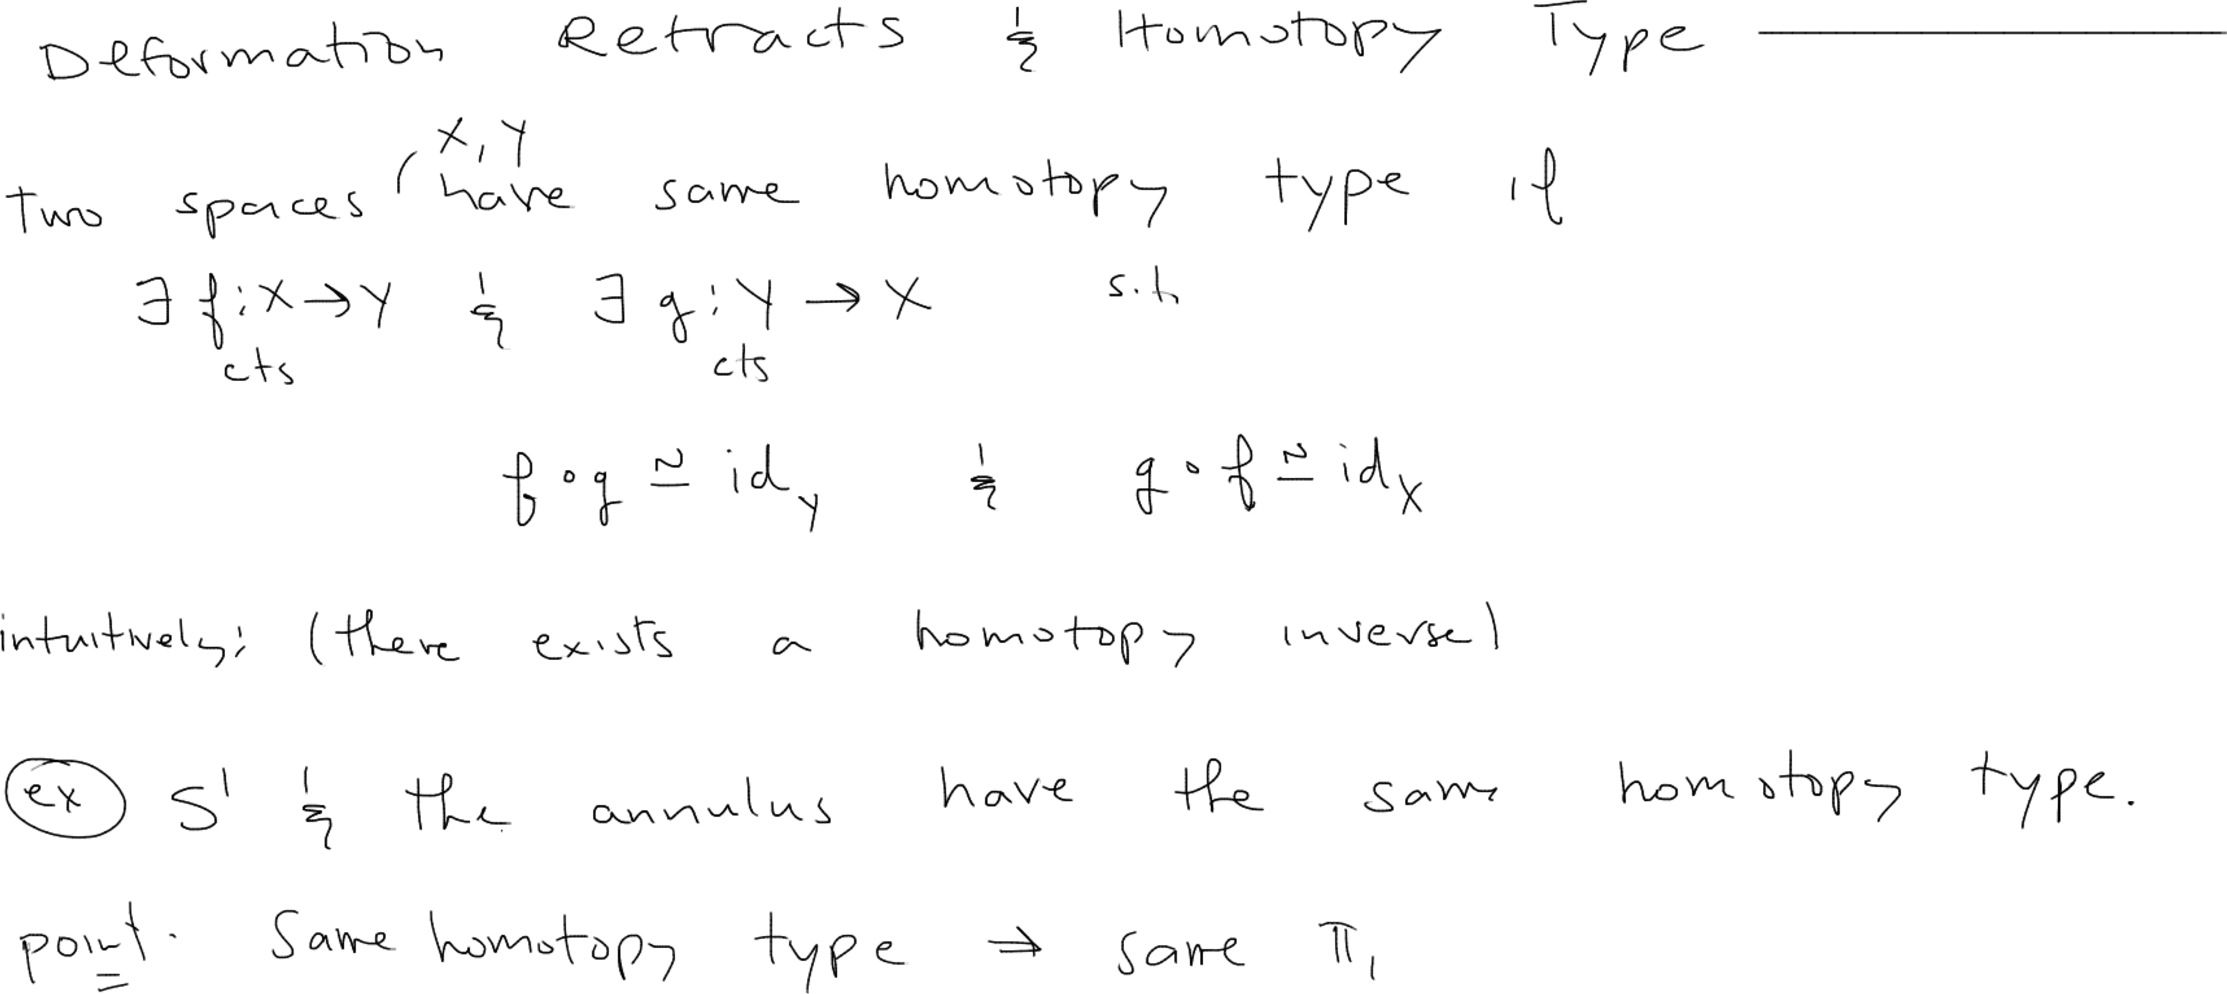 Deformation Retracts & Homotopy Type
Two spaces X, Y have same homotopy type if
∃ f: X → Y & ∃ g: Y → X s.t.
cts cts
f ∘ g ≃ id_Y & g ∘ f ≃ id_X
intuitively: (there exists a homotopy inverse)
ex S¹ & the annulus have the same homotopy type.
point. Same homotopy type ⇒ same π₁